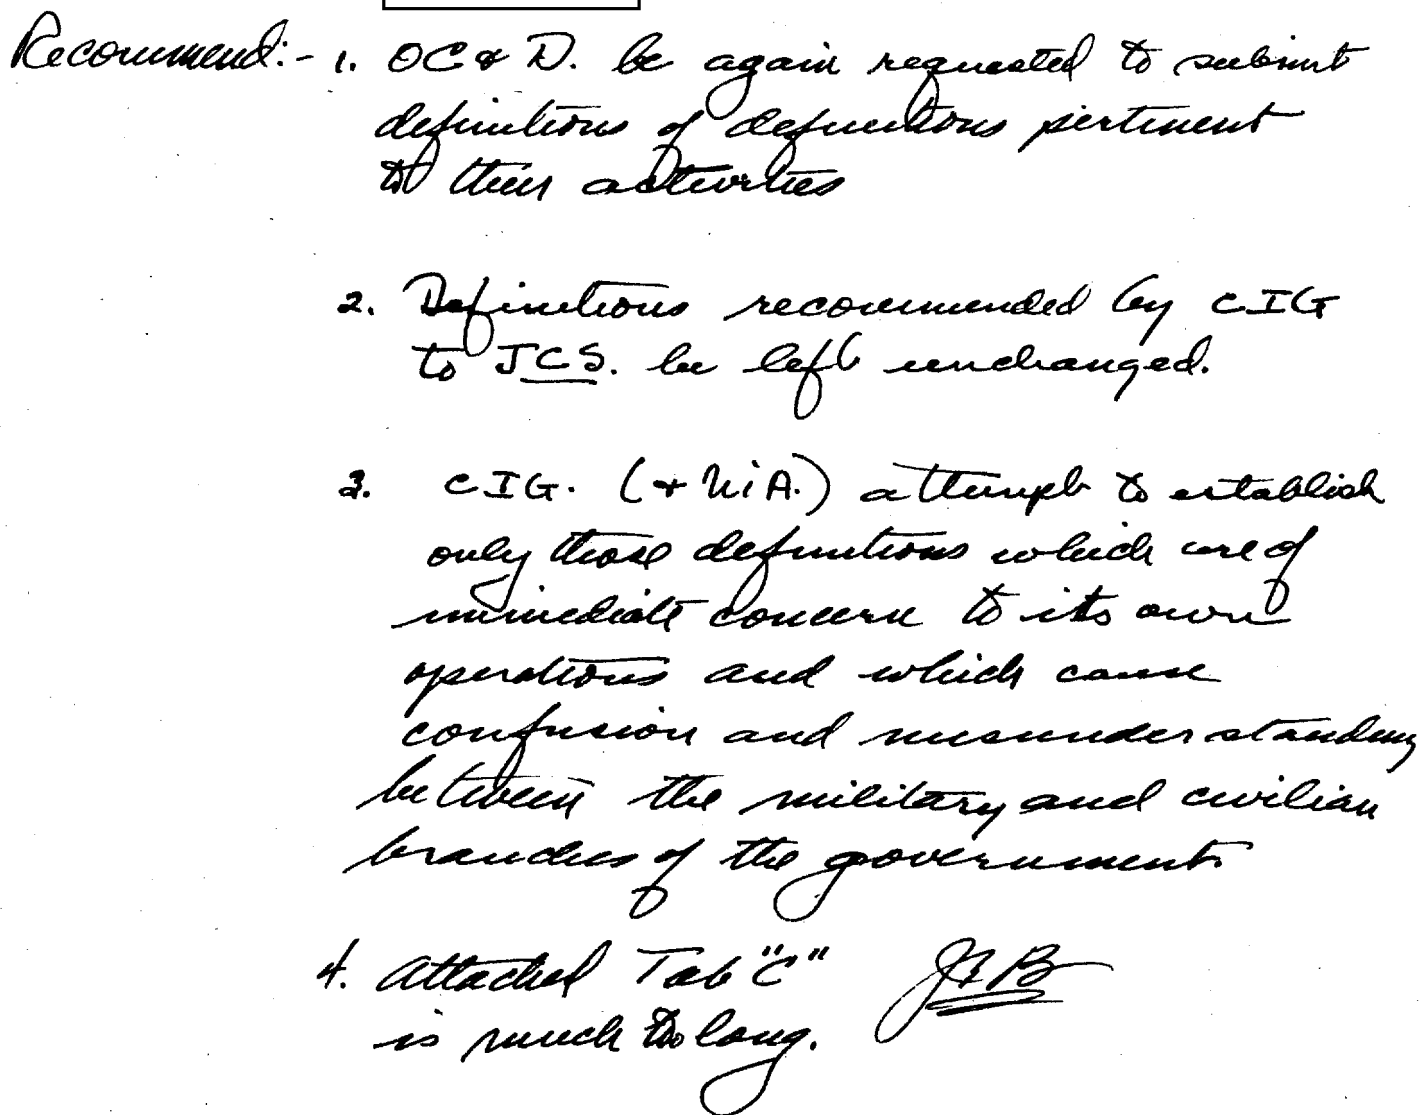 Recommend:- 1. OC & D. be again requested to submit
definitions of definitions pertinent
to their activities
2. Definitions recommended by CIG
to JCS. be left unchanged.
3. CIG. (+ NIA.) attempt to establish
only those definitions which are of
immediate concern to its own
operations and which cause
confusion and misunderstanding
between the military and civilian
branches of the government.
4. Attached Tab "C"
is much too long.